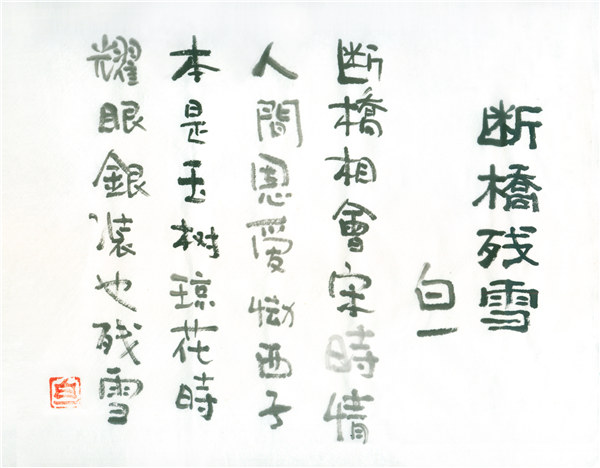 断橋残雪
白一
断橋相會宋時情
人間恩愛恸西子
本是玉树琼花時
耀眼銀装也残雪
白